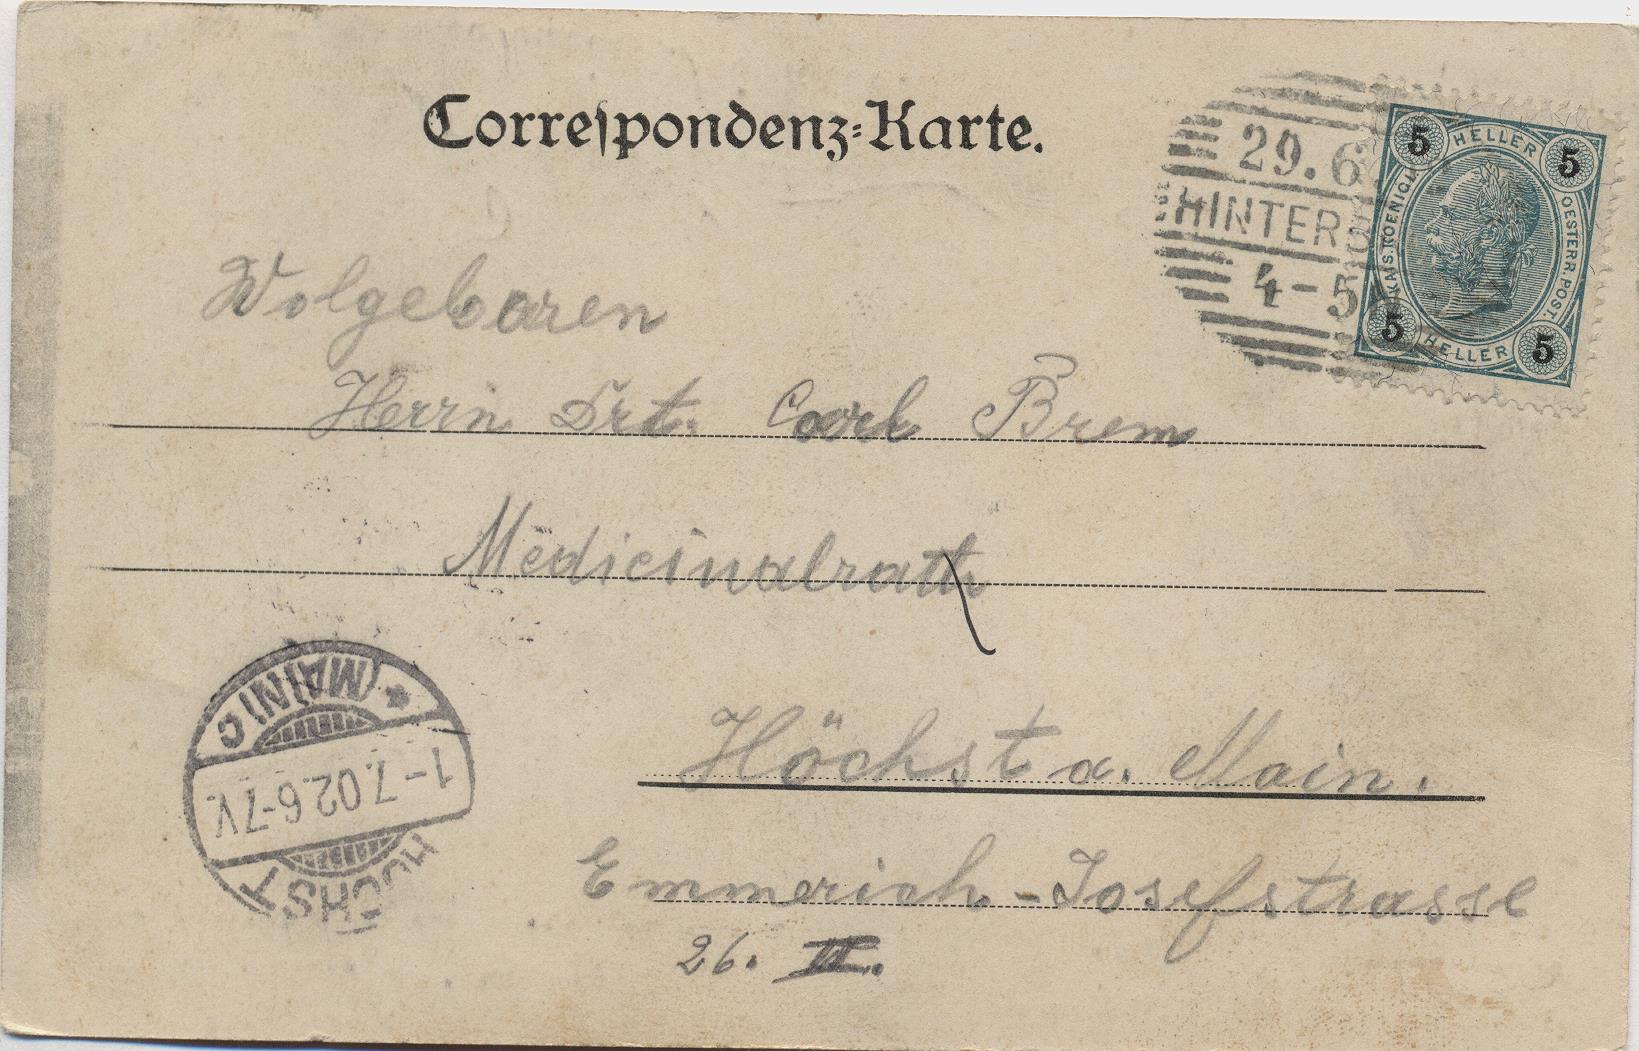 Correspondenz-Karte.
29.6
HINTER
4-5
5 HELLER 5
KAIS. KOENIGL. OESTERR. POST.
5 HELLER 5
Wolgeboren
Herrn Carl Brem
Medicinalrath
Höchst a. Main.
Emmerich-Josefstrasse
26. II.
HÖCHST
1-7.02.6-7V.
(MAIN) C